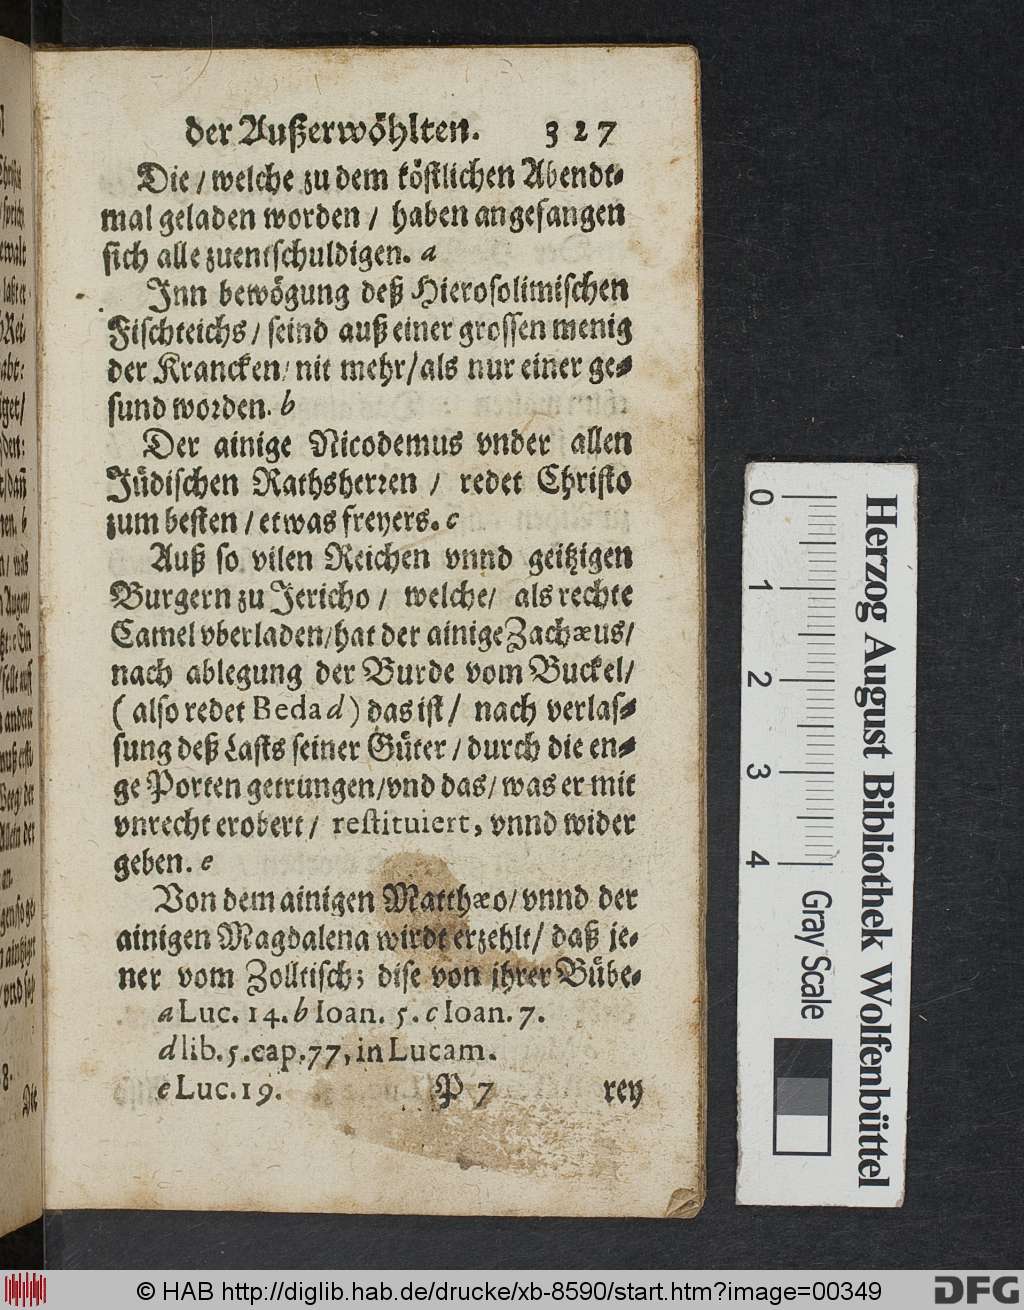 der Außerwöhlten. 327
Die / welche zu dem köstlichen Abendt-
mal geladen worden / haben angefangen
sich alle zuentschuldigen. a
Inn bewögung deß Hierosolimischen
Fischteichs / seind auß einer grossen menig
der Krancken / nit mehr / als nur einer ge-
sund worden. b
Der ainige Nicodemus vnder allen
Jüdischen Rathsherren / redet Christo
zum besten / etwas freyers. c
Auß so vilen Reichen vnnd geitzigen
Burgern zu Jericho / welche / als rechte
Camel vberladen / hat der ainige Zachæus /
nach ablegung der Burde vom Buckel /
( also redet Beda d ) das ist / nach verlas-
sung deß Lasts seiner Güter / durch die en-
ge Porten getrungen / vnd das / was er mit
vnrecht erobert / restituiert, vnnd wider
geben. e
Von dem ainigen Matthæo / vnnd der
ainigen Magdalena wirdt erzehlt / daß je-
ner vom Zolltisch; dise von jhrer Bübe-
a Luc. 14. b Ioan. 5. c Ioan. 7.
d lib. 5. cap. 77, in Lucam.
e Luc. 19. P 7 rey
Herzog August Bibliothek Wolfenbüttel
0 1 2 3 4 Gray Scale
© HAB http://diglib.hab.de/drucke/xb-8590/start.htm?image=00349
DFG